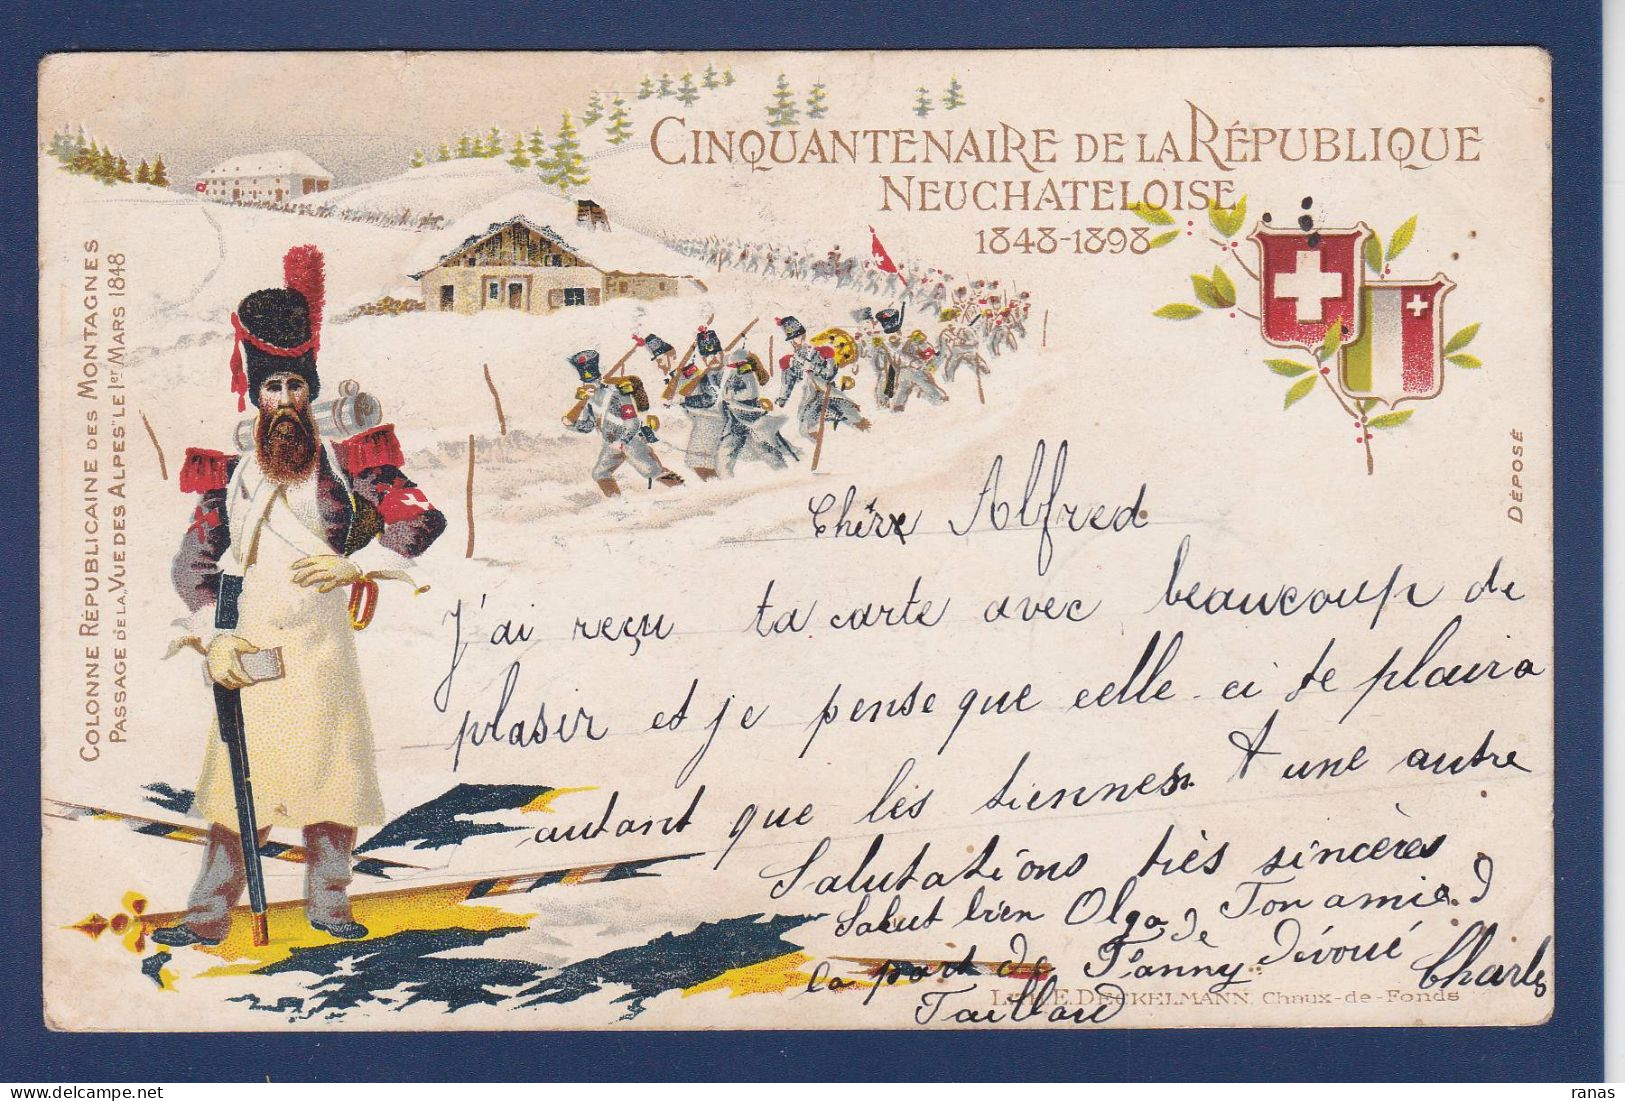 CINQUANTENAIRE DE LA RÉPUBLIQUE
NEUCHATELOISE
1848-1898
COLONNE RÉPUBLICAINE DES MONTAGNES
PASSAGE DE LA „VUE DES ALPES" LE 1er MARS 1848
DÉPOSÉ
Chère Alfred
J'ai reçu ta carte avec beaucoup de
plasir et je pense que celle-ci te plaira
autant que les tiennes. A une autre
Salutations très sincères
Salut bien Olga de Ton amie
la part de Fanny Dévoué Charles
Taillard
LITH. E. DECKELMANN, Chaux-de-Fonds
ranas